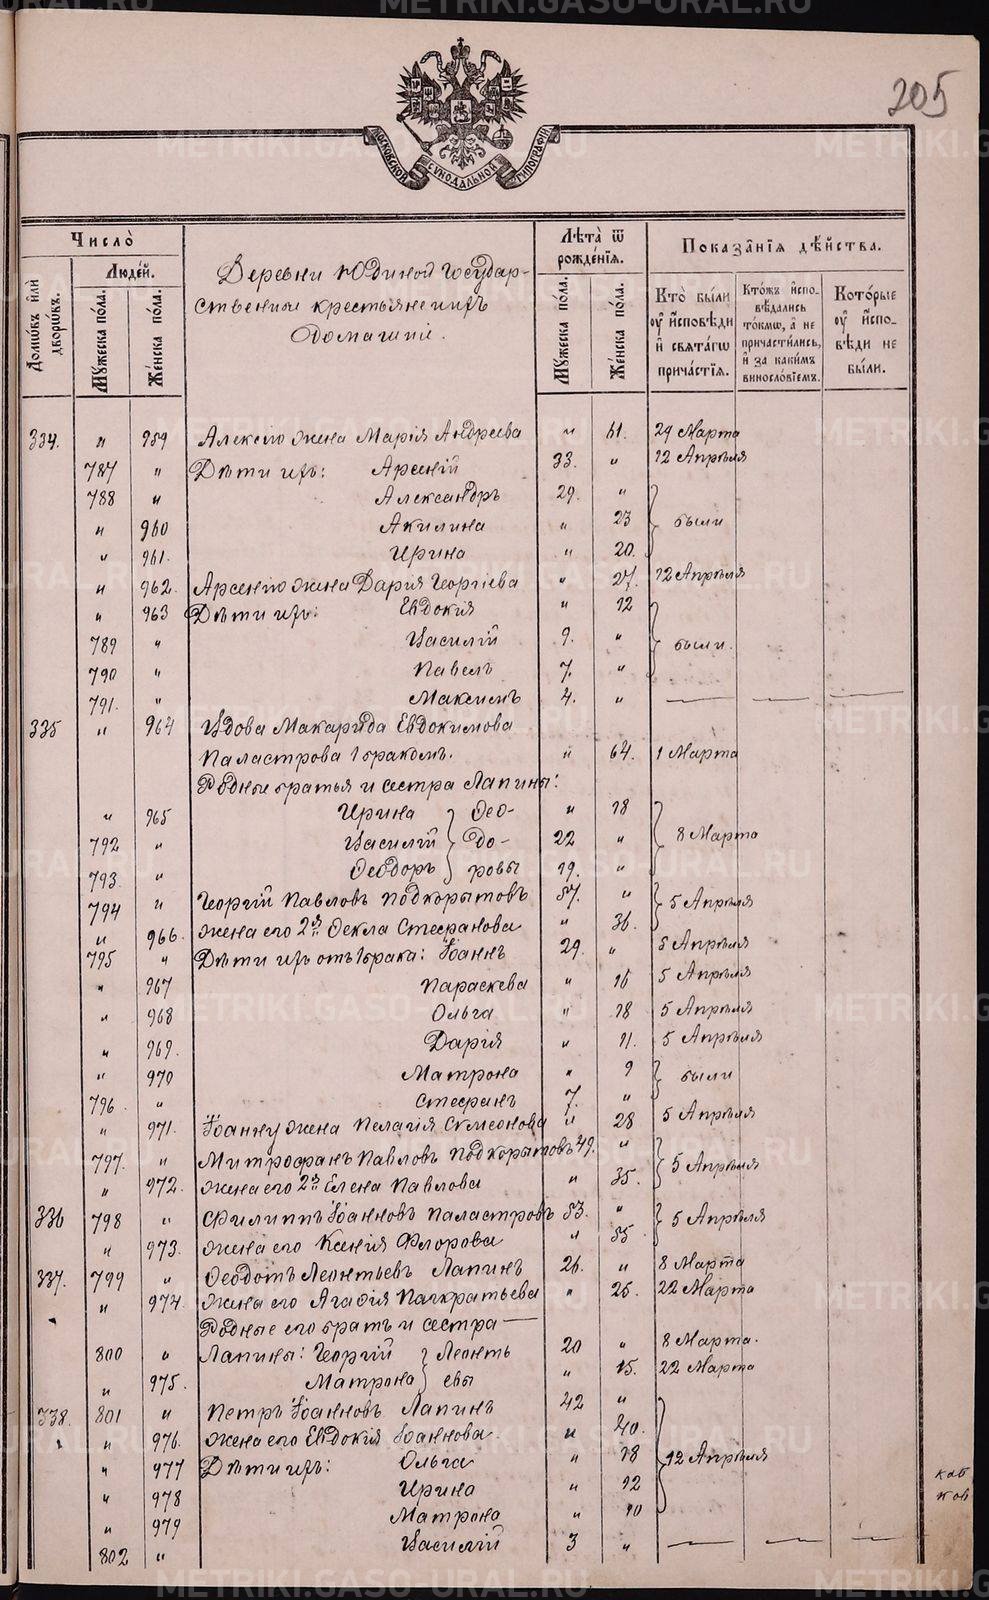 205
МОСКОВСКОЙ СѴНОДАЛЬНОЙ ТИПОГРАФІИ
Число̀
Домѡ́въ и҆лѝ дворѡ́въ.
Люде́й.
Мꙋ́жеска по́ла.
Же́нска по́ла.
Деревни Юдиной государ-
ственные крестьяне и ихъ
домашніе.
Лѣта̀ ѿ рожде́нїѧ.
Мꙋ́жеска по́ла.
Же́нска по́ла.
Показа̑нїѧ дѣ́йства.
Кто̀ бы́ли оу҆ и҆сповѣ́ди и҆ свѧта́гѡ прича́стїѧ.
Кто́жъ и҆спо-вѣ́дались то́кмѡ, а҆ не причасти́лись, и҆ за каки́мъ винослѡ́вїемъ.
Кото́рые оу҆ и҆спо-вѣ́ди не бы́ли.
334. " 959 Алексію жена Марія Андреева " 61. 29 Марта
787 " Дѣти ихъ: Арсеній 33. " 12 Апрѣля
788 " Александръ 29. "
" 960 Акилина " 23 были
" 961. Ирина " 20.
" 962. Арсенію жена Дарія Георгіева " 27. 12 Апрѣля
" 963 Дѣти ихъ: Евдокія " 12
789 " Василій 9. " были.
790 " Павелъ 7. "
791. " Максимъ 4. " — — —
335 " 964 Вдова Макарида Евдокимова
Паластрова 1 бракомъ. " 64. 1 Марта
Родные братья и сестра Лапины:
" 965 Ирина Ѳео- " 18
792 " Василій до- 22 " 8 Марта
793. " Ѳеодоръ ровы 19. "
794 " Георгій Павловъ Подкорытовъ 57. " 5 Апрѣля
" 966. Жена его 2я Ѳекла Стефанова " 36.
795 " Дѣти ихъ отъ 1 брака: Іоаннъ 29. " 5 Апрѣля
" 967 Параскева " 16 5 Апрѣля
" 968 Ольга " 18 5 Апрѣля
" 969. Дарія " 11. 5 Апрѣля
" 970 Матрона " 9 были
796 " Стефанъ 7. "
" 971. Іоанну жена Пелагія Сѵмеонова " 28 5 Апрѣля
797. " Митрофанъ Павловъ Подкорытовъ 49. " 5 Апрѣля
" 972. Жена его 2я Елена Павлова " 35.
336 798 " Филиппъ Іоанновъ Паластровъ 53. " 5 Апрѣля
" 973. Жена его Ксенія Флорова " 55
337. 799 " Ѳеодотъ Леонтьевъ Лапинъ 26. " 8 Марта
" 974. Жена его Агафія Панкратьева " 25. 22 Марта
Родные его братъ и сестра —
800 " Лапины: Георгій Леонть 20 " 8 Марта.
" 975. Матрона евы " 15. 22 Марта
338. 801 " Петръ Іоанновъ Лапинъ 42 "
" 976. Жена его Евдокія Іоаннова " 40.
" 977 Дѣти ихъ: Ольга " 18 12 Апрѣля
" 978 Ирина " 12
" 979 Матрона " 10
802 " Василій 3 " — — —
METRIKI.GASO-URAL.RU